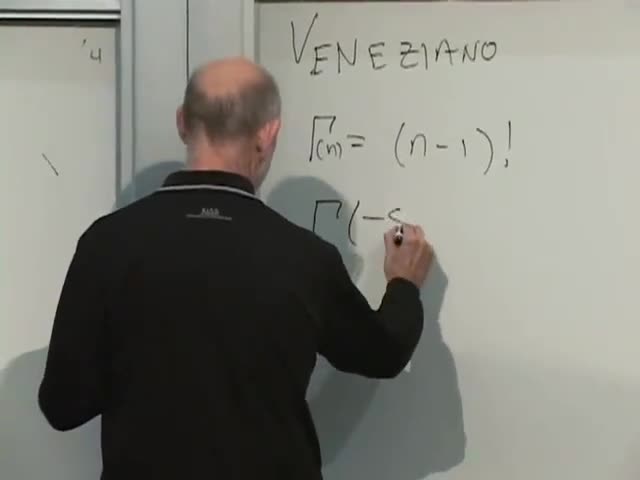 '4
VENEZIANO
Γ(n) = (n-1)!
Γ(-s